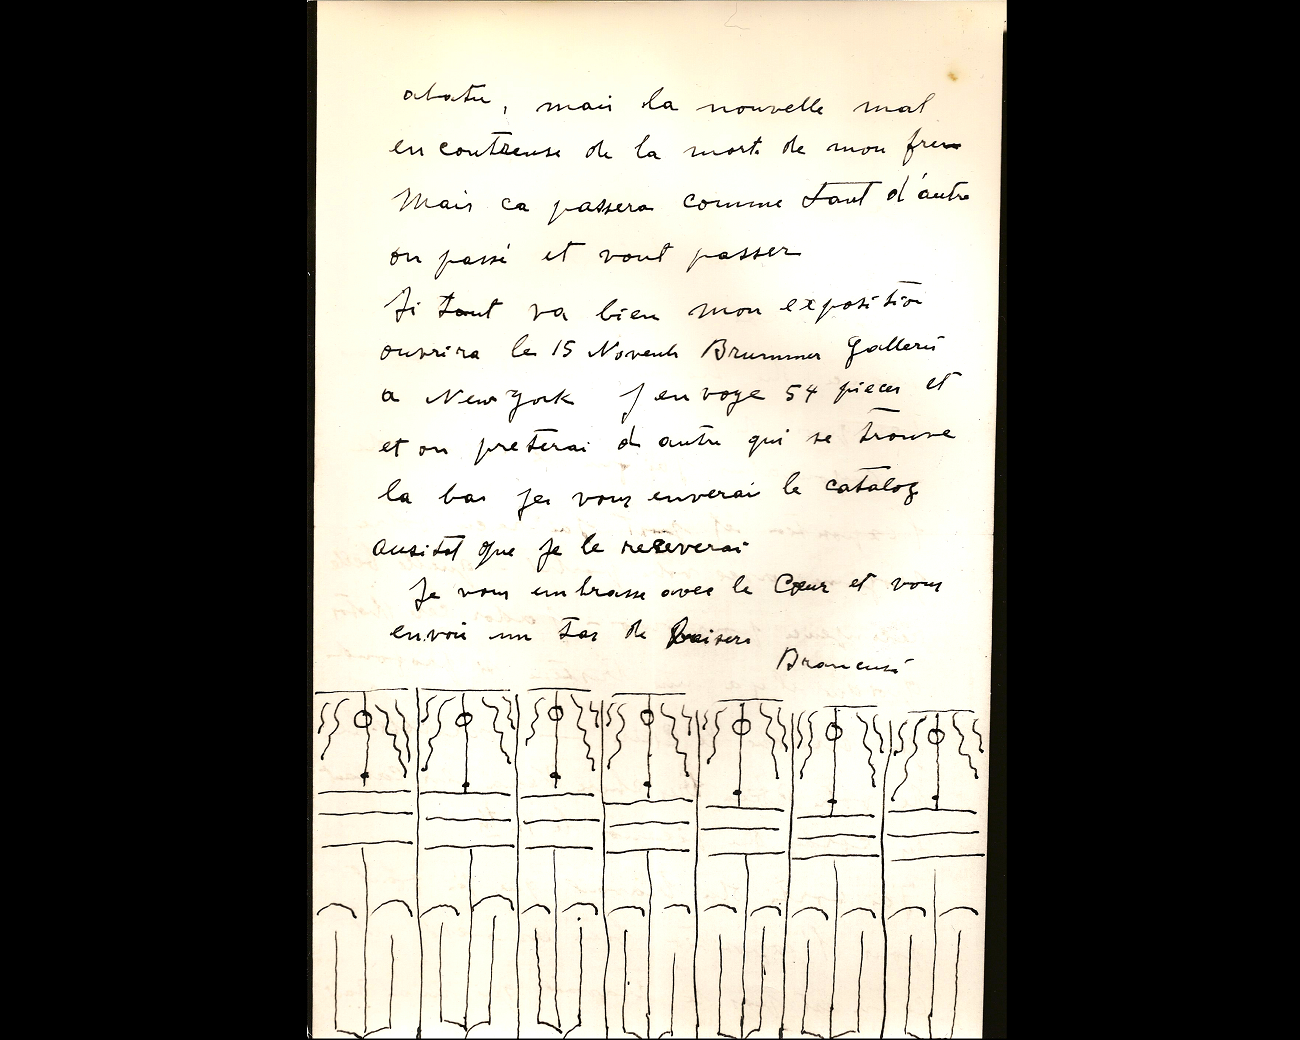 abatu, mais la nouvelle mal
encontreuse de la mort de mon frere
Mais ca passera comme tant d'autre
on passé et vont passer
Si tout va bien mon exposition
ouvrira le 15 Novemb Brummer Gallerie
a New York J envoye 54 pieces et
et on preterai d autre qui se trouve
la bas je vous enverai le catalog
ausitot que je le reseverai
Je vous embrasse avec le Cœur et vous
envoi un tas de Baisers
Brancusi